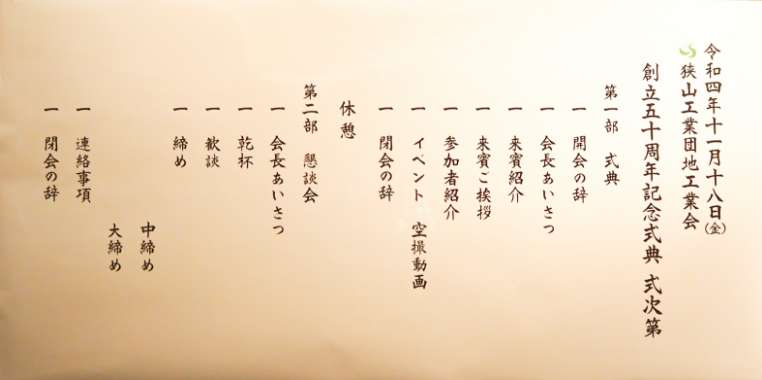 令和四年十一月十八日(金)
狭山工業団地工業会
創立五十周年記念式典 式次第
第一部 式典
一 開会の辞
一 会長あいさつ
一 来賓紹介
一 来賓ご挨拶
一 参加者紹介
一 イベント 空撮動画
一 閉会の辞
休憩
第二部 懇談会
一 会長あいさつ
一 乾杯
一 歓談
一 締め
中締め
大締め
一 連絡事項
一 閉会の辞